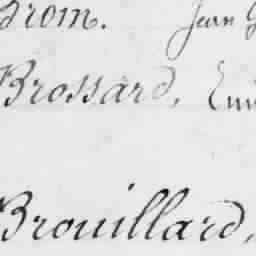 Brom. Jean
Brossard,
Brouillard,